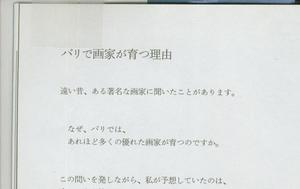 パリで画家が育つ理由
遠い昔、ある著名な画家に聞いたことがあります。
なぜ、パリでは、
あれほど多くの優れた画家が育つのですか。
この問いを発しながら、私が予想していたのは、